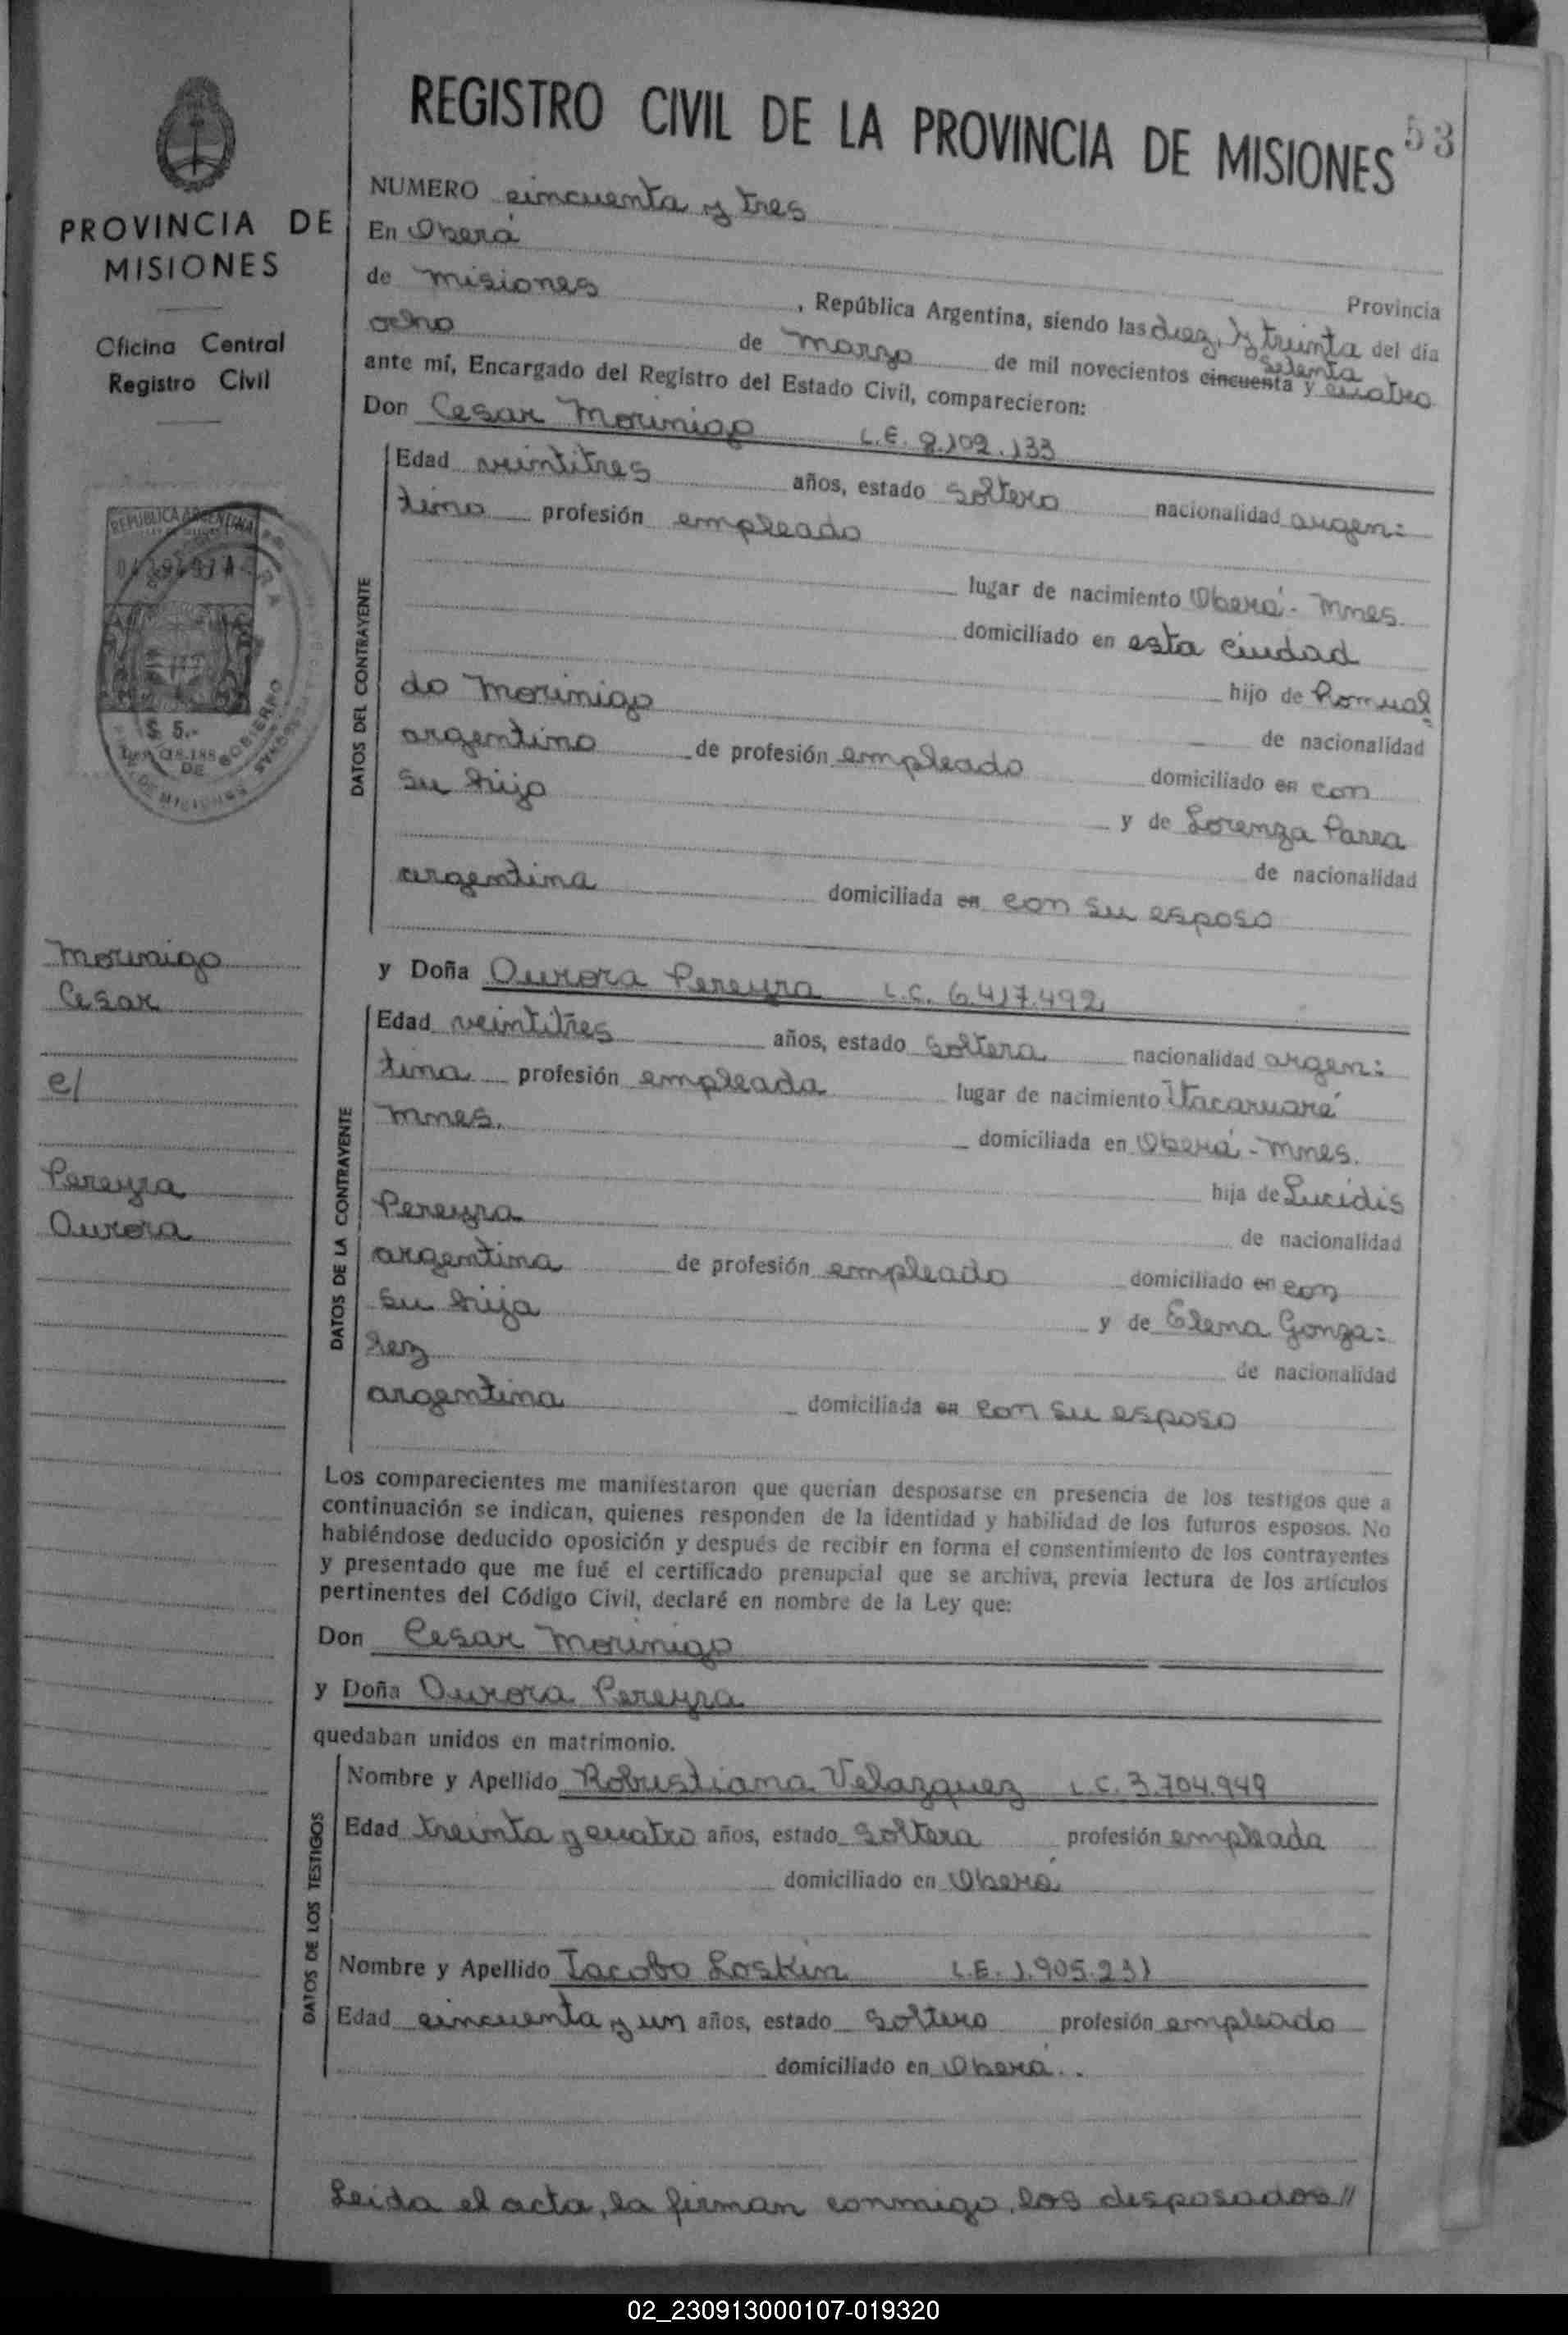 REGISTRO CIVIL DE LA PROVINCIA DE MISIONES 53
PROVINCIA DE
MISIONES
Oficina Central
Registro Civil
REPUBLICA ARGENTINA
$ 5.-
DE
Morinigo
Cesar
c/
Pereyra
Aurora
NUMERO cincuenta y tres
En Oberá
Provincia
de Misiones, República Argentina, siendo las diez y treinta del día
ocho de marzo de mil novecientos cincuenta setenta y cuatro
ante mí, Encargado del Registro del Estado Civil, comparecieron:
Don Cesar Morinigo L.E. 8.102.133
DATOS DEL CONTRAYENTE
Edad veintitres años, estado soltero nacionalidad argen:
tino profesión empleado
lugar de nacimiento Oberá - Mnes.
domiciliado en esta ciudad
hijo de Romual
do Morinigo
de nacionalidad
argentino de profesión empleado domiciliado en con
su hijo
y de Lorenza Parra
de nacionalidad
argentina domiciliada en con su esposo
y Doña Aurora Pereyra L.C. 6.417.492
DATOS DE LA CONTRAYENTE
Edad veintitres años, estado soltera nacionalidad argen:
tina profesión empleada lugar de nacimiento Itacaruaré
Mnes. domiciliada en Oberá - Mnes.
hija de Lucidis
Pereyra
de nacionalidad
argentina de profesión empleado domiciliado en con
su hija
y de Elena Gonza:
lez
de nacionalidad
argentina domiciliada en con su esposo
Los comparecientes me manifestaron que querían desposarse en presencia de los testigos que a
continuación se indican, quienes responden de la identidad y habilidad de los futuros esposos. No
habiéndose deducido oposición y después de recibir en forma el consentimiento de los contrayentes
y presentado que me fué el certificado prenupcial que se archiva, previa lectura de los artículos
pertinentes del Código Civil, declaré en nombre de la Ley que:
Don Cesar Morinigo
y Doña Aurora Pereyra
quedaban unidos en matrimonio.
DATOS DE LOS TESTIGOS
Nombre y Apellido Robustiana Velazquez L.C. 3.704.949
Edad treinta y cuatro años, estado soltera profesión empleada
domiciliado en Oberá
Nombre y Apellido Jacobo Loskin L.E. 1.905.231
Edad cincuenta y un años, estado soltero profesión empleado
domiciliado en Oberá.
Leida el acta, la firman conmigo, los desposados//
02_230913000107-019320